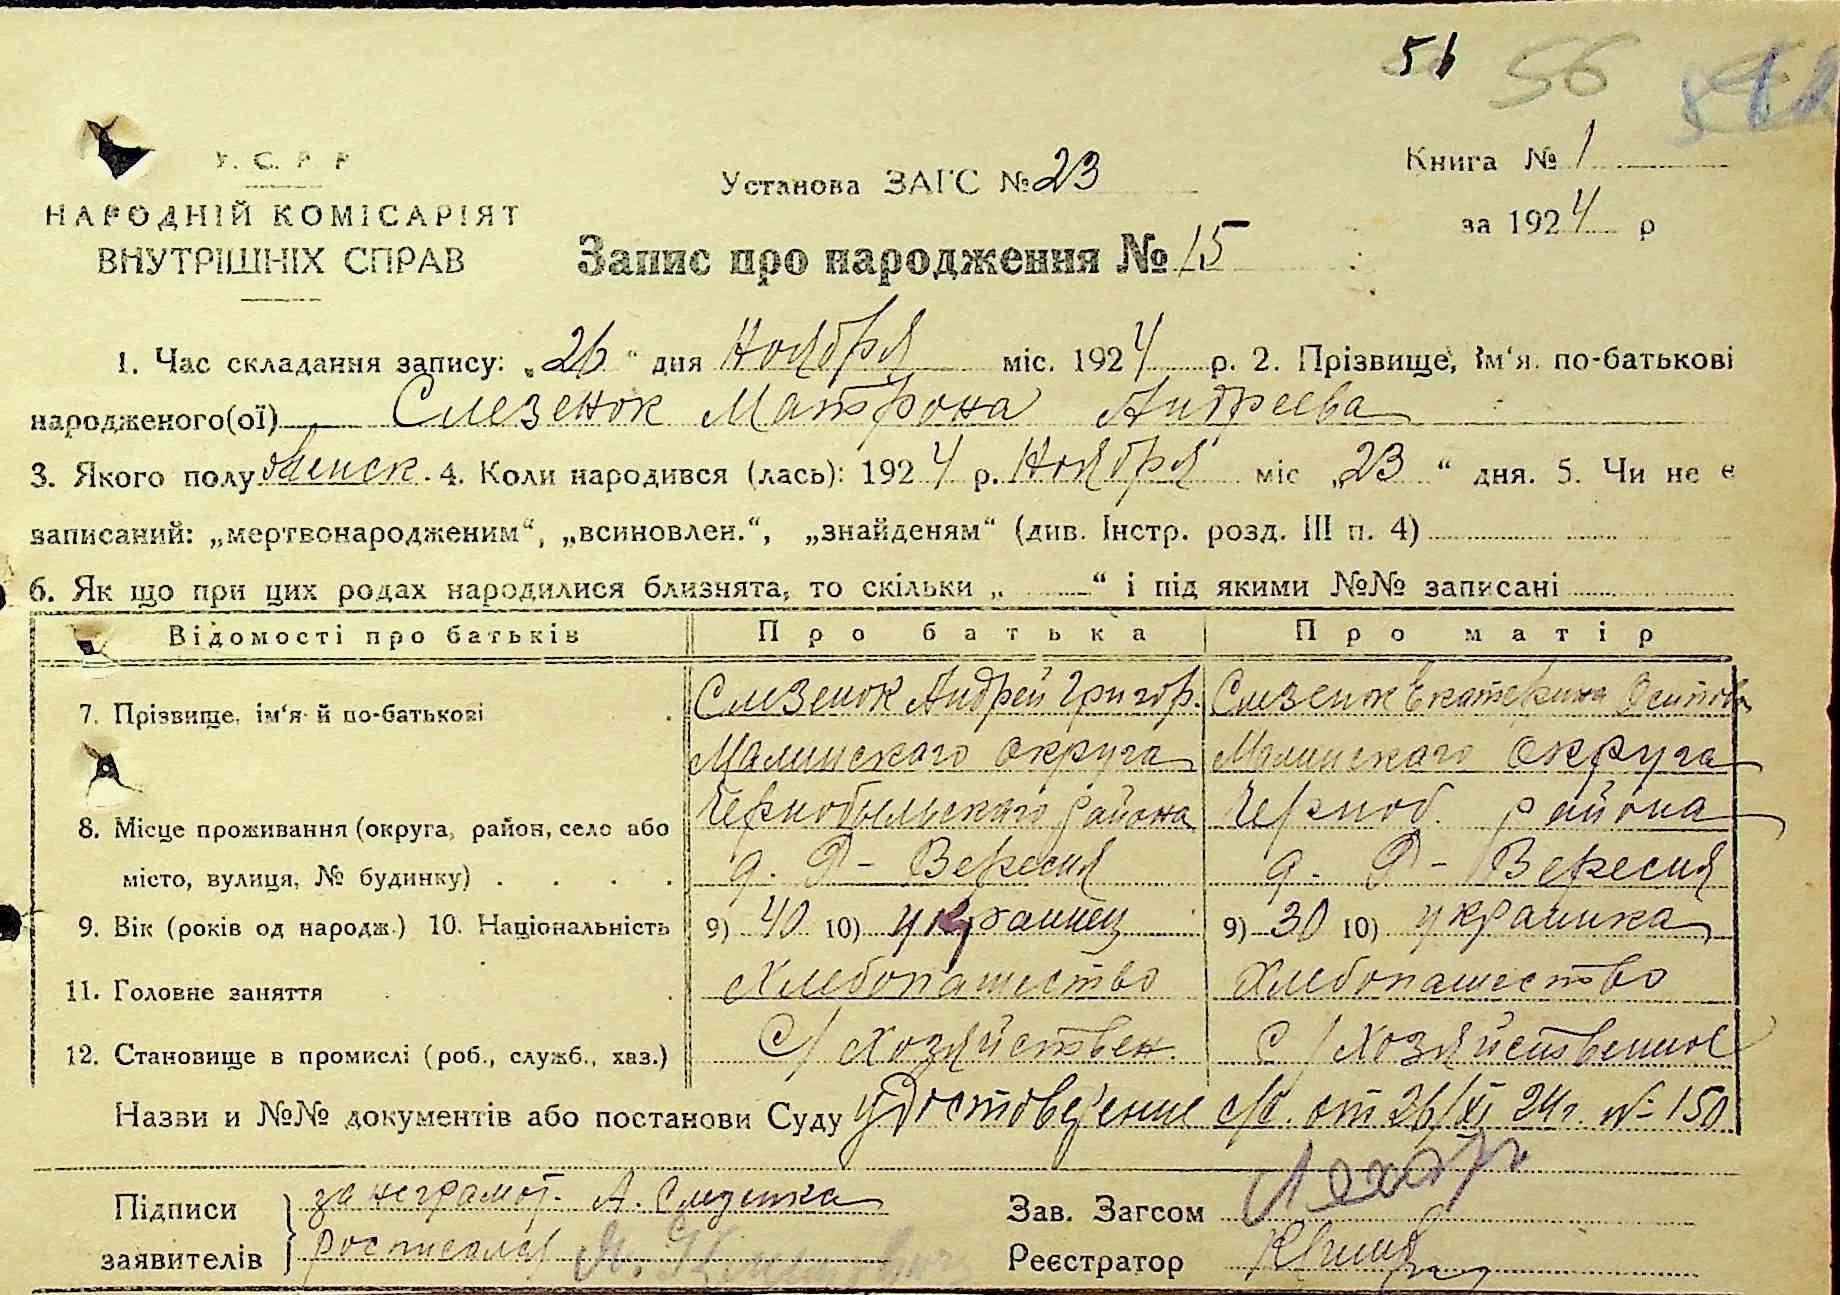 56 56
У. С. Р. Р.
Установа ЗАГС № 23
Книга № 1
НАРОДНІЙ КОМІСАРІЯТ
за 1924 р
ВНУТРІШНІХ СПРАВ
Запис про народження № 15
1. Час складання запису: „26“ дня Ноября міс. 1924 р. 2. Прізвище, ім‘я, по-батькові
народженого(ої) Слезенок Матрона Андреева
3. Якого полу женск. 4. Коли народився (лась): 1924 р. Ноября міс „23“ дня. 5. Чи не є
записаний: „мертвонародженим“, „всиновлен.“, „знайденям“ (див. Інстр. розд. III п. 4)
6. Як що при цих родах народилися близнята, то скільки „ “ і під якими №№ записані
Відомості про батьків Про батька Про матір
7. Прізвище, ім‘я й по-батькові Слезенок Андрей Григор. Слезенок Екатерина Осипова
Малинского округа Малинского округа
Чернобыльского района Черноб. района
8. Місце проживання (округа, район, село або
місто, вулиця, № будинку) . . . . д. Вересня д. Вересня
9. Вік (років од народж.) 10. Національність 9) 40 10) украинец 9) 30 10) украинка
11. Головне заняття Хлебопашество Хлебопашество
12. Становище в промислі (роб., служб., хаз.) С/хозяйствен. С/хозяйственное
Назви и №№ документів або постанови Суду удостоверение с/с. от 26/XI 24г. № 150
Підписи за неграмот. А. Слезенка Зав. Загсом
заявителів росписался Реєстратор